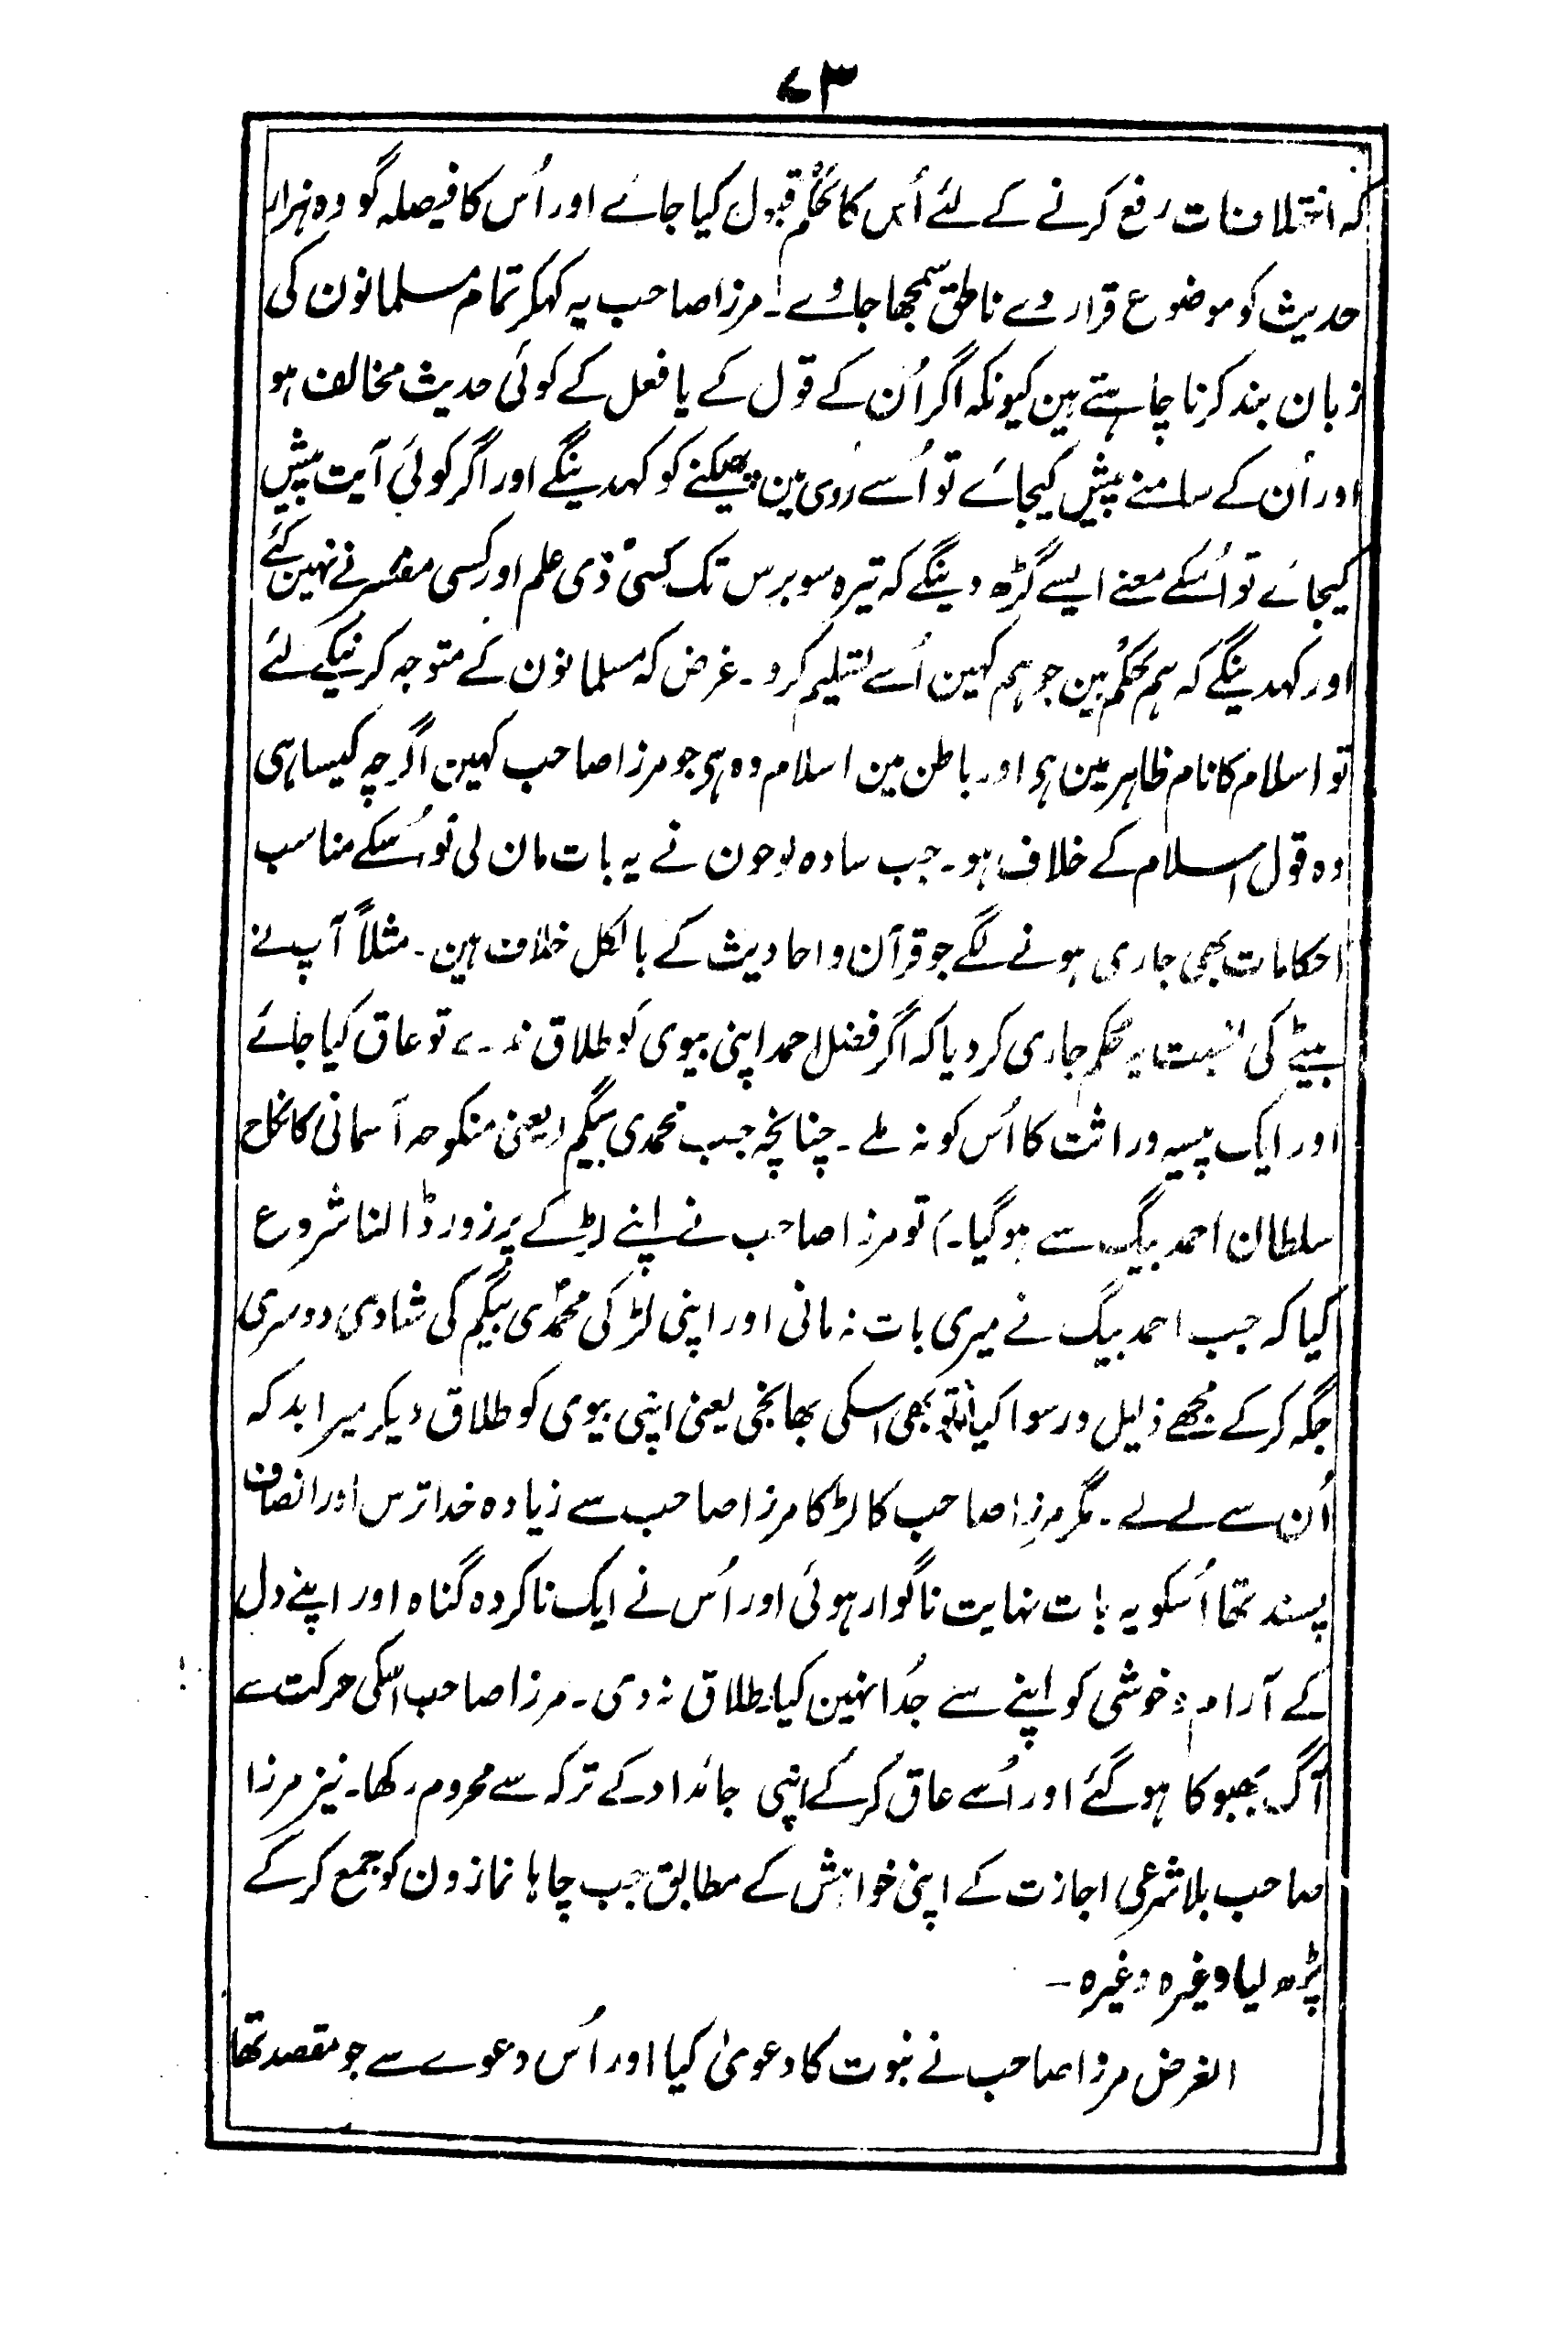 ۷۳
کہ اختلافات رفع کرنے کے لئے اُس کا حکم قبول کیا جاے اور اُس کا فیصلہ گو وہ ہزار
حدیث کو موضوع قرار دے ناطق سمجھا جاوے۔ مرزا صاحب یہ کہکر تمام مسلمانون کی
زبان بند کرنا چاہتے ہین کیونکہ اگر اُن کے قول کے یا فعل کے کوئی حدیث مخالف ہو
اور اُن کے سامنے پیش کیجاے تو اُسے ردی مین پھیکنے کو کہدینگے اور اگر کوئی آیت پیش
کیجاے تو اُسکے معنے ایسے گڑھ دینگے کہ تیرہ سو برس تک کسی ذی علم اور کسی مفسر نے نہین کئے
اور کہدینگے کہ ہم حکم ہین جو ہم کہین اُسے تسلیم کرو۔ غرض کہ مسلمانون کے متوجہ کرنیکے لئے
تو اسلام کا نام ظاہر مین ہی اور باطن مین اسلام وہ ہی جو مرزا صاحب کہین اگرچہ کیسا ہی
وہ قول اسلام کے خلاف ہو۔ جب سادہ لوحون نے یہ بات مان لی تو اُسکے مناسب
احکامات بھی جاری ہونے لگے جو قرآن و احادیث کے بالکل خلاف ہین۔ مثلاً آپ نے
بیٹے کی نسبت یہ حکم جاری کردیا کہ اگر فضل احمد اپنی بیوی کو طلاق نہ دے تو عاق کیا جائے
اور ایک پیسہ وراثت کا اُس کو نہ ملے۔ چنانچہ جب محمدی بیگم (یعنی منکوحہ آسمانی کا نکاح
سلطان احمد بیگ سے ہوگیا۔) تو مرزا صاحب نے اپنے لڑکے پر زور ڈالنا شروع
کیا کہ جب احمد بیگ نے میری بات نہ مانی اور اپنی لڑکی محمدی بیگم کی شادی دوسری
جگہ کرکے مجھے ذلیل و رسوا کیا تو تو بھی اسکی بھانجی یعنی اپنی بیوی کو طلاق دیکر میرا بدلہ
اُن سے لے لے۔ مگر مرزا صاحب کا لڑکا مرزا صاحب سے زیادہ خدا ترس اور انصاف
پسند تھا اُسکو یہ بات نہایت ناگوار ہوئی اور اُس نے ایک ناکردہ گناہ اور اپنے دل
کے آرام و خوشی کو اپنے سے جُدا نہین کیا طلاق نہ دی۔ مرزا صاحب اسکی حرکت سے
آگ بھبوکا ہوگئے اور اُسے عاق کرکے اپنی جائداد کے ترکہ سے محروم رکھا۔ نیز مرزا
صاحب بلا شرعی اجازت کے اپنی خواہش کے مطابق جب چاہا نمازون کو جمع کرکے
پڑھ لیا وغیرہ وغیرہ۔
الغرض مرزا صاحب نے نبوت کا دعویٰ کیا اور اُس دعوے سے جو مقصد تھا